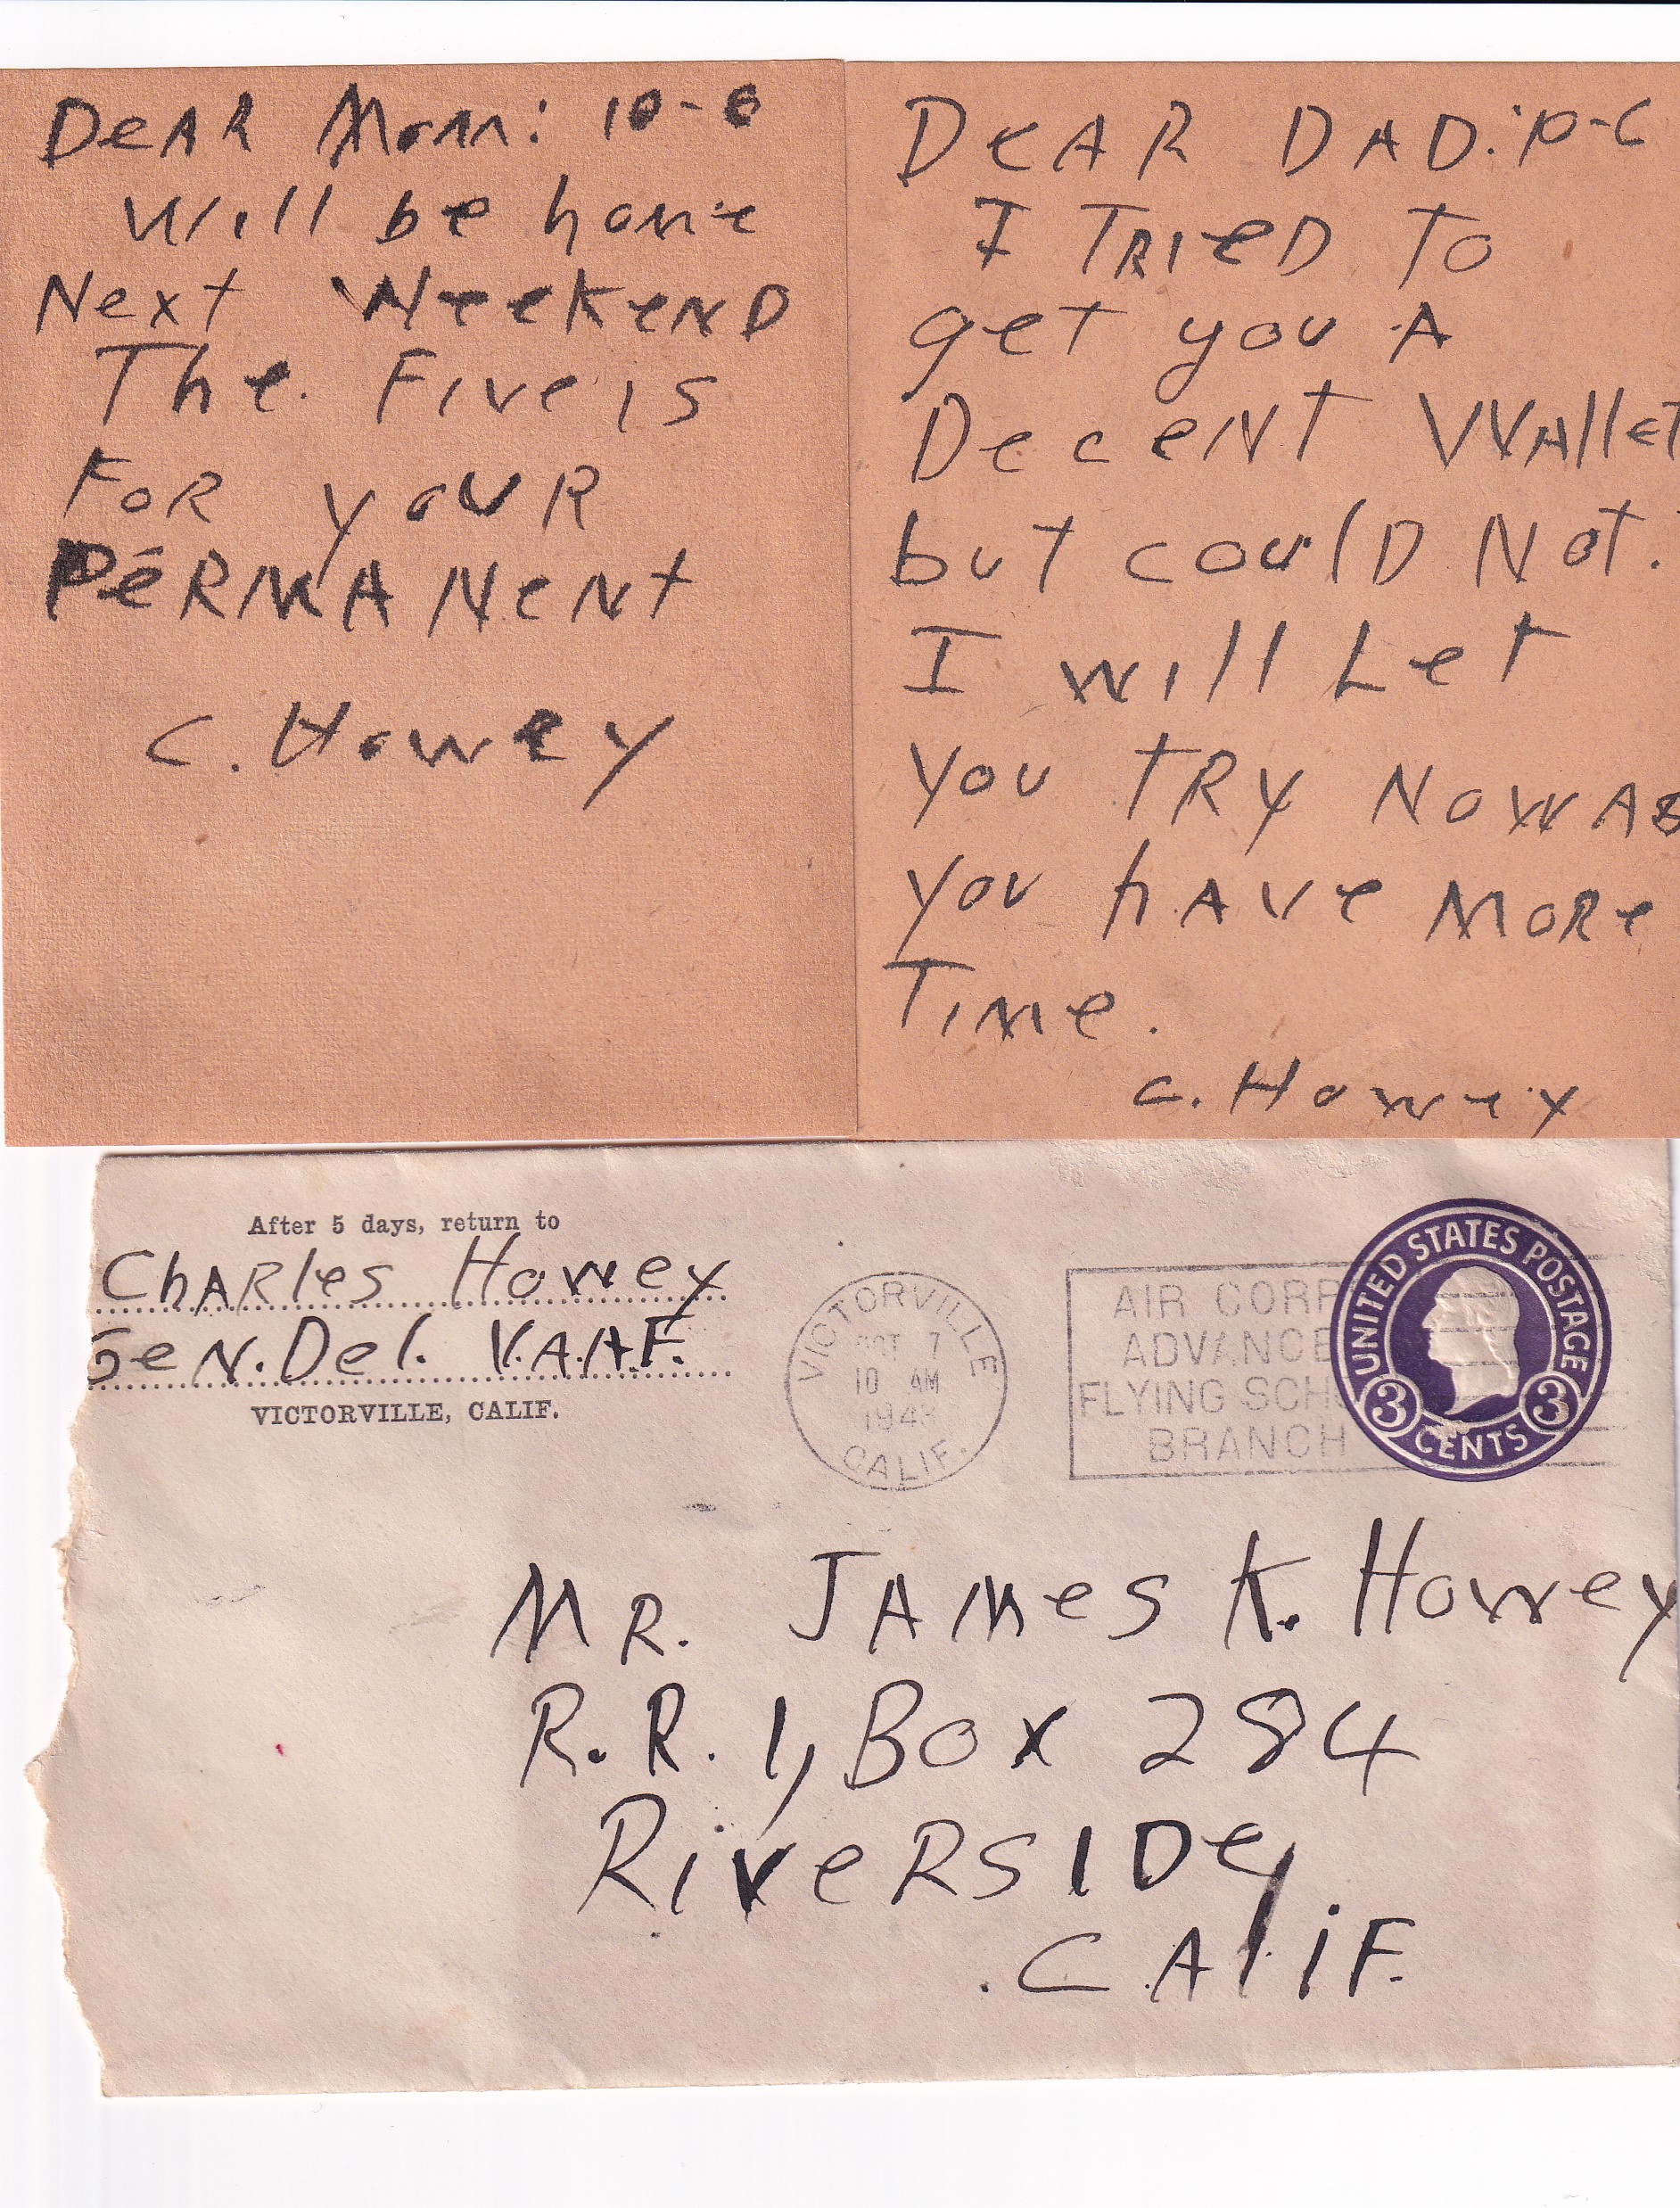 DeAR Mom: 10-6
Will be home
Next Weekend
The Five is
FoR youR
PeRMANeNt
C. Howey
DeAR DAD: 10-6
I TRIeD To
get you A
DeceNT WAlleT
but coulD Not.
I will Let
you tRy Now AS
you hAve MoRe
Time.
C. Howey
After 5 days, return to
ChARles Howey
GeN. Del. V.A.A.F.
VICTORVILLE, CALIF.
VICTORVILLE
OCT 7
10 AM
1943
CALIF.
AIR CORP
ADVANCE
FLYING SCHO
BRANCH
UNITED STATES POSTAGE
3 CENTS 3
MR. JAMes K. Howey
R.R. 1, Box 284
RiveRSIDe,
CAliF.